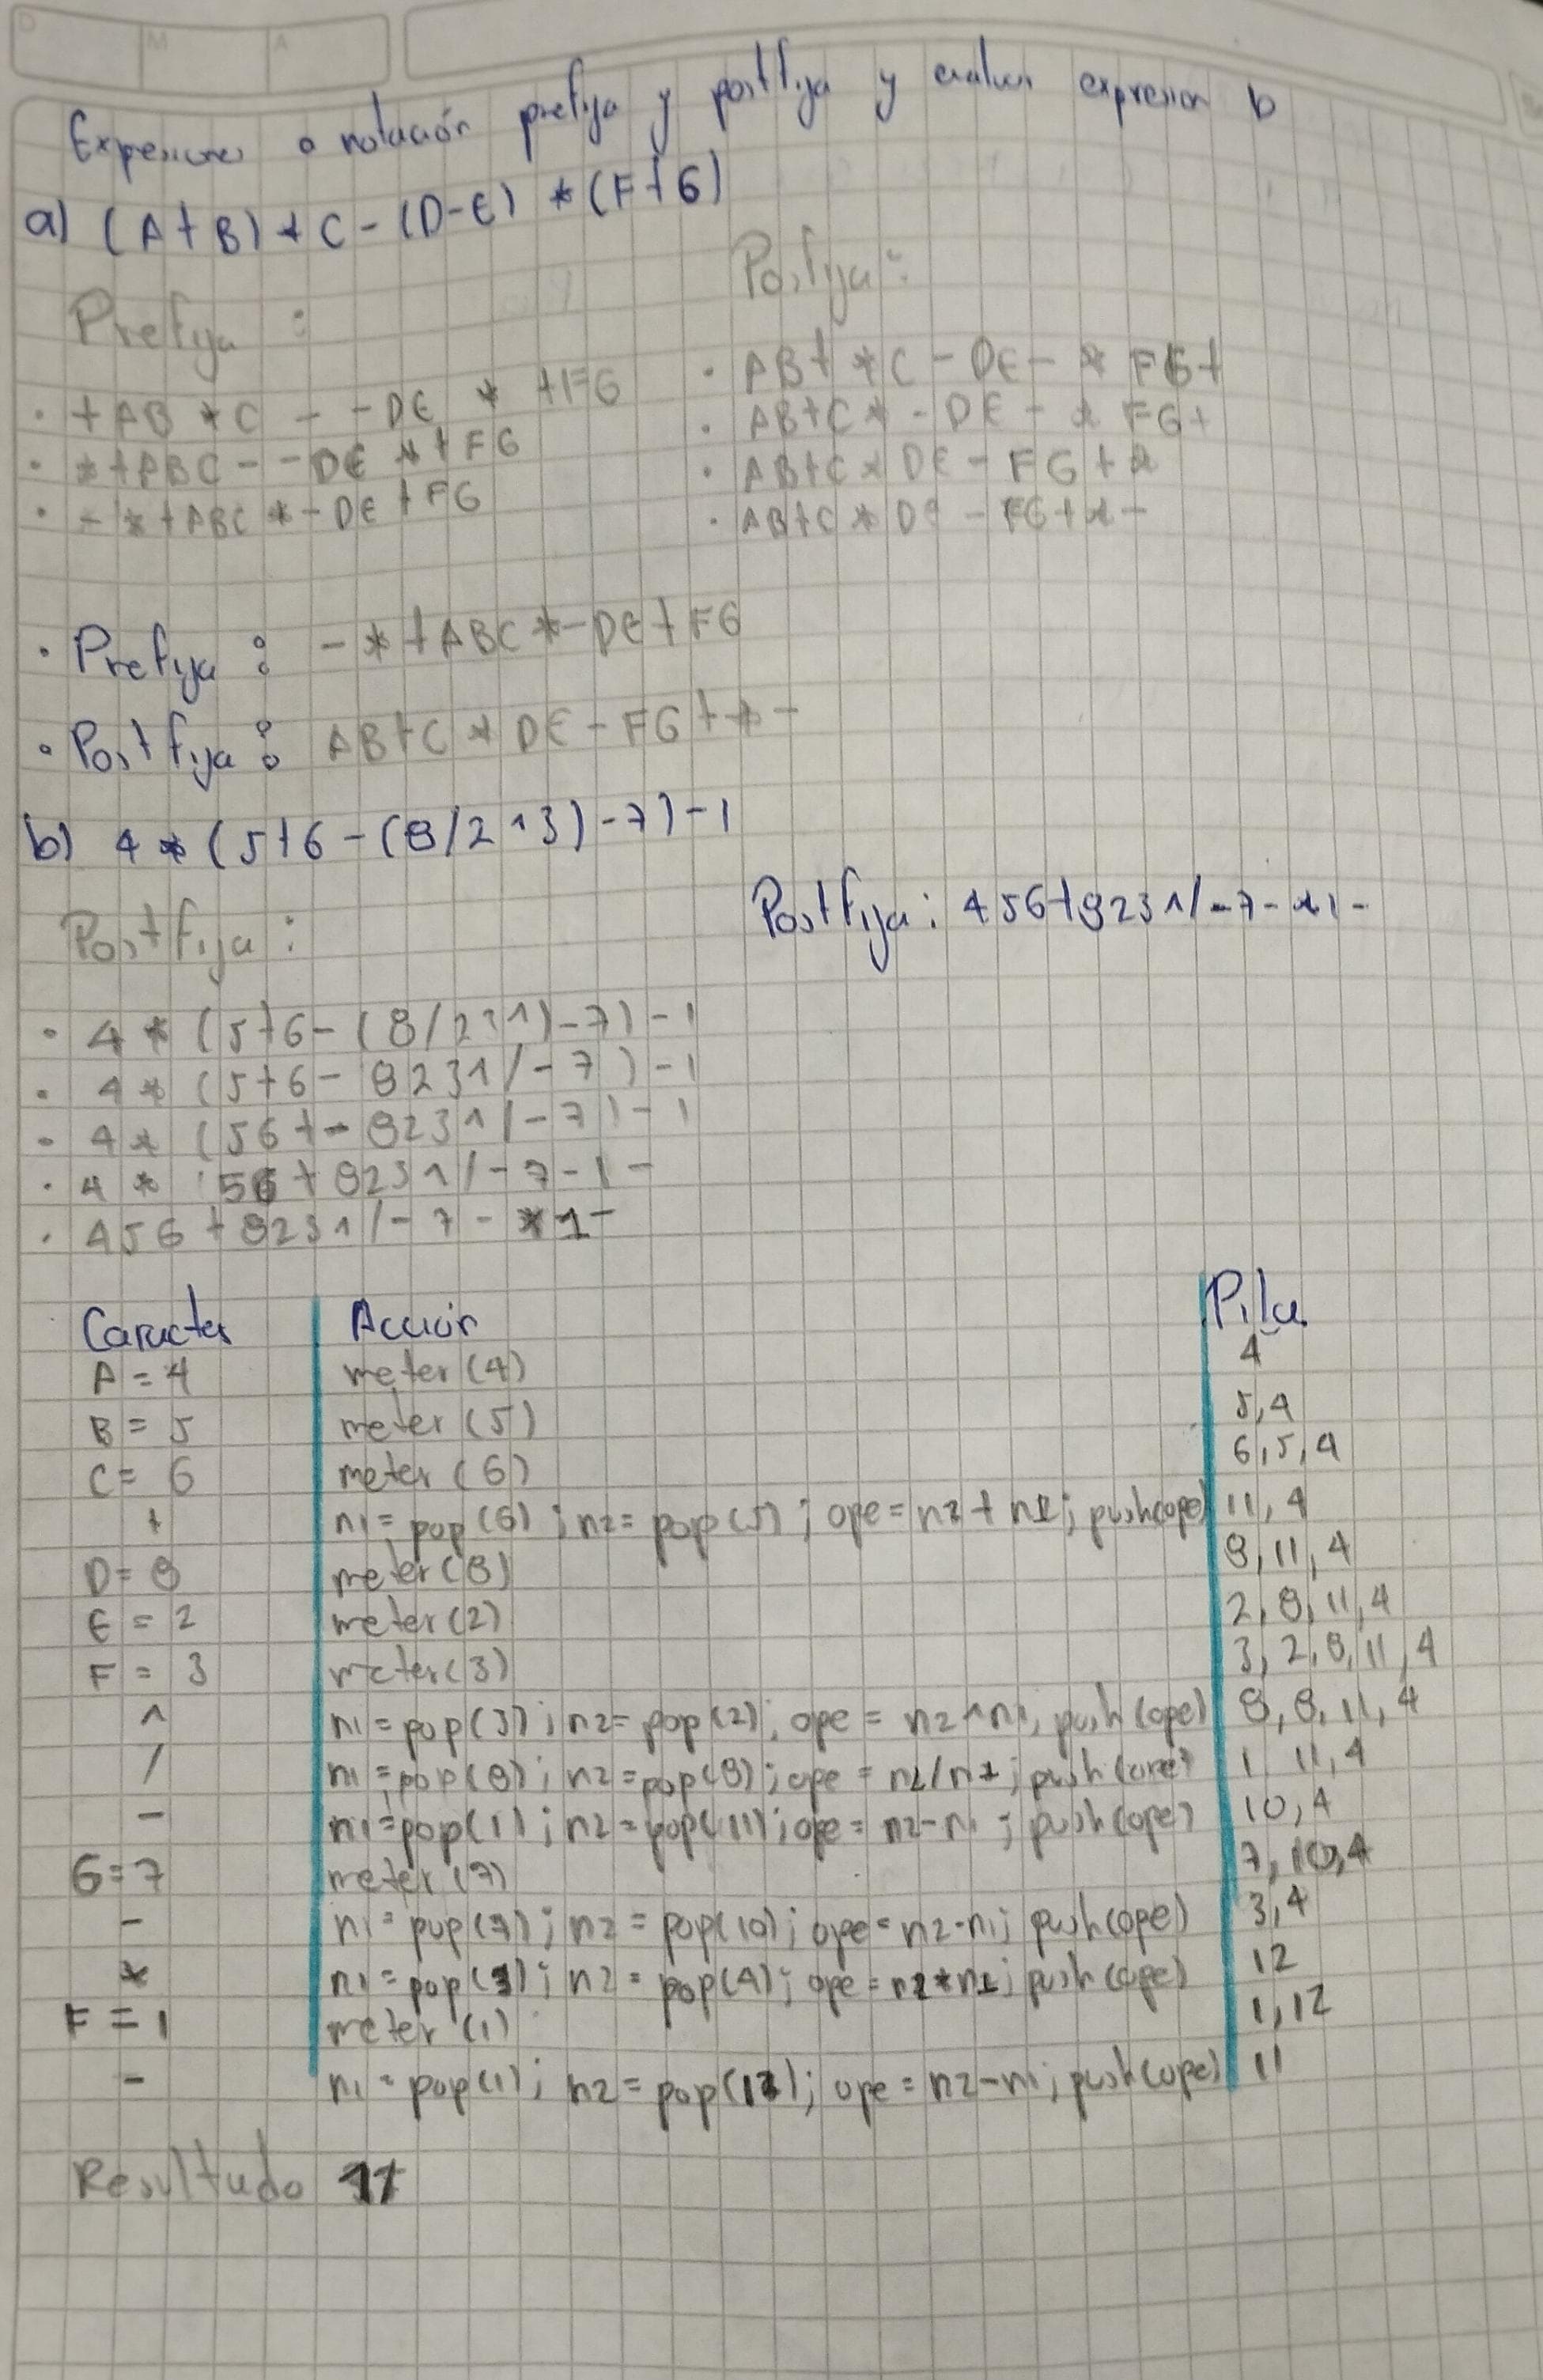 D M A
Expresiones a notación prefija y postfija y evaluar expresion b
a) (A+B)*C-(D-E)*(F+G)
Prefija :
· +AB*C - -DE * +FG
· *+ABC - -DE *+FG
· -*+ABC*-DE+FG
Posfija:
· AB+ *C - DE- * FG+
· AB+C* - DE - * FG+
· AB+C*DE-FG+*
· AB+C*DE-FG+*-
· Prefija : -*+ABC*-DE+FG
· Postfija : AB+C*DE-FG+*-
b) 4*(5+6-(8/2^3)-7)-1
Postfija: 456+823^/-7-*1-
Postfija :
· 4*(5+6-(8/23^)-7)-1
· 4*(5+6-823^/-7)-1
· 4*(56+-823^/-7)-1
· 4* 56+823^/-7-1-
· 456+823^/-7-*1-
Caracter Acción Pila
A=4 meter(4) 4
B=5 meter(5) 5,4
C=6 meter(6) 6,5,4
+ n1=pop(6); n2=pop(5); ope=n2+n1; push(ope) 11,4
D=8 meter(8) 8,11,4
E=2 meter(2) 2,8,11,4
F=3 meter(3) 3,2,8,11,4
^ n1=pop(3); n2=pop(2); ope=n2^n1; push(ope) 8,8,11,4
/ n1=pop(8); n2=pop(8); ope=n2/n1; push(ope) 1 11,4
- n1=pop(1); n2=pop(11); ope=n2-n1; push(ope) 10,4
G=7 meter(7) 7,10,4
- n1=pop(7); n2=pop(10); ope=n2-n1; push(ope) 3,4
* n1=pop(3); n2=pop(4); ope=n2*n1; push(ope) 12
F=1 meter(1) 1,12
- n1=pop(1); n2=pop(12); ope=n2-n1; push(ope) 11
Resultado 11